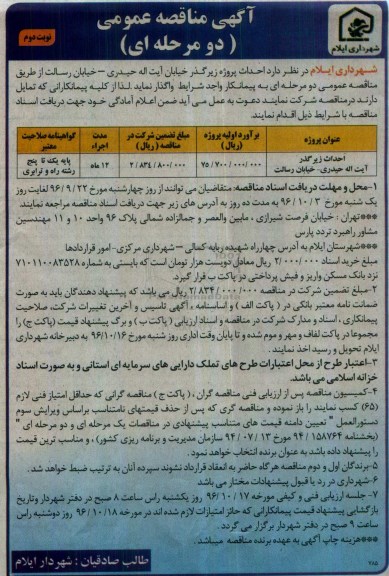 آگهی مناقصه عمومی
( دو مرحله ای)
نوبت دوم
شهرداری ایلام
شهرداری ایلام در نظر دارد احداث پروژه زیرگذر خیابان آیت اله حیدری – خیابان رسالت از طریق
مناقصه عمومی دو مرحله ای به پیمانکار واجد شرایط واگذار نماید. لذا از کلیه پیمانکارانی که تمایل
دارند در مناقصه شرکت نمایند دعوت به عمل می آید ضمن اعلام آمادگی خود جهت دریافت اسناد
مناقصه با شرایط ذیل اقدام نمایند
عنوان پروژه | برآورد اولیه پروژه (ریال) | مبلغ تضمین شرکت در مناقصه (ریال) | مدت اجراء | گواهینامه صلاحیت معتبر
احداث زیرگذر آیت اله حیدری- خیابان رسالت | ۷۵/۷۰۰/۰۰۰/۰۰۰ | ۲/۸۳۴/۸۰۰/۰۰۰ | ۱۴ ماه | پایه یک تا پنج رشته راه و ترابری
۱-محل و مهلت دریافت اسناد مناقصه: متقاضیان می توانند از روز چهارشنبه مورخ ۹۶/۹/۲۲ لغایت روز
یک شنبه مورخ ۹۶/۱۰/۳ به مدت ده روز به آدرس های زیر جهت دریافت اسناد مناقصه مراجعه نمایند.
***تهران : خیابان فرصت شیرازی ، مابین والعصر و جمالزاده شمالی پلاک ۹۶ واحد ۱۰ و ۱۱ مهندسین
مشاور راهبرد تردد پارس
***شهرستان ایلام به آدرس چهارراه شهیده ربابه کمالی – شهرداری مرکزی- امور قراردادها
مبلغ خرید اسناد ۲/۰۰۰/۰۰۰ ریال معادل دویست هزار تومان است که بایستی به شماره ۷۱۰۱۱۰۰۸۳۵۲۸
نزد بانک مسکن واریز و فیش پرداختی در پاکت ب قرار گیرد.
۲-مبلغ تضمین شرکت در مناقصه ۲/۸۳۴/۰۰۰/۰۰۰ ریال می باشد که پیشنهاد دهندگان باید به صورت
ضمانت نامه معتبر بانکی در ( پاکت الف ) و اساسنامه ، آگهی تاسیس و آخرین تغییرات شرکت، صلاحیت
پیمانکاری ، اسناد و مدارک شرکت در مناقصه و اسناد ارزیابی ( پاکت ب ) و برگ پیشنهاد قیمت (پاکت ج) را
مجموعا در پاکت لفاف و مهر و موم شده و تا پایان وقت اداری روز شنبه مورخ ۹۶/۱۰/۱۶ به دبیرخانه شهرداری
ایلام تحویل و رسید اخذ نمایند.
۳-اعتبار طرح از محل اعتبارات طرح های تملک دارایی های سرمایه ای استانی و به صورت اسناد
خزانه اسلامی می باشد.
۴-کمیسیون مناقصه پس از ارزیابی فنی مناقصه گران ، ( پاکت ج ) مناقصه گرانی که حداقل امتیاز فنی لازم
(۶۵) کسب نمایند را باز نموده و مناقصه گری که پس از حذف قیمتهای نامتناسب براساس ویرایش سوم
دستورالعمل " تعیین دامنه قیمت های متناسب پیشنهادی در مناقصات یک مرحله ای و دو مرحله ای "
(بخشنامه ۹۴/۱۵۸۷۶۴ مورخ ۹۴/۰۷/۱۳ سازمان مدیریت و برنامه ریزی کشور) ، و مناسب ترین قیمت
را پیشنهاد داده باشد به عنوان برنده انتخاب خواهد نمود.
۵-برندگان اول و دوم مناقصه هرگاه حاضر به انعقاد قرارداد نشوند سپرده آنان به ترتیب ضبط خواهد شد.
۶-شهرداری در رد یا قبول پیشنهادات مختار می باشد
۷- جلسه ارزیابی فنی و کیفی مورخه ۹۶/۱۰/۱۷ روز یکشنبه راس ساعت ۸ صبح در دفتر شهردار وتاریخ
بازگشایی پیشنهاد قیمت پیمانکارانی که حائز امتیازات لازم شده اند در مورخه ۹۶/۱۰/۱۸ روز دوشنبه راس
ساعت ۹ صبح در دفتر شهردار برگزار می گردد.
***هزینه چاپ آگهی به عهده برنده مناقصه میباشد.
طالب صادقیان : شهردار ایلام